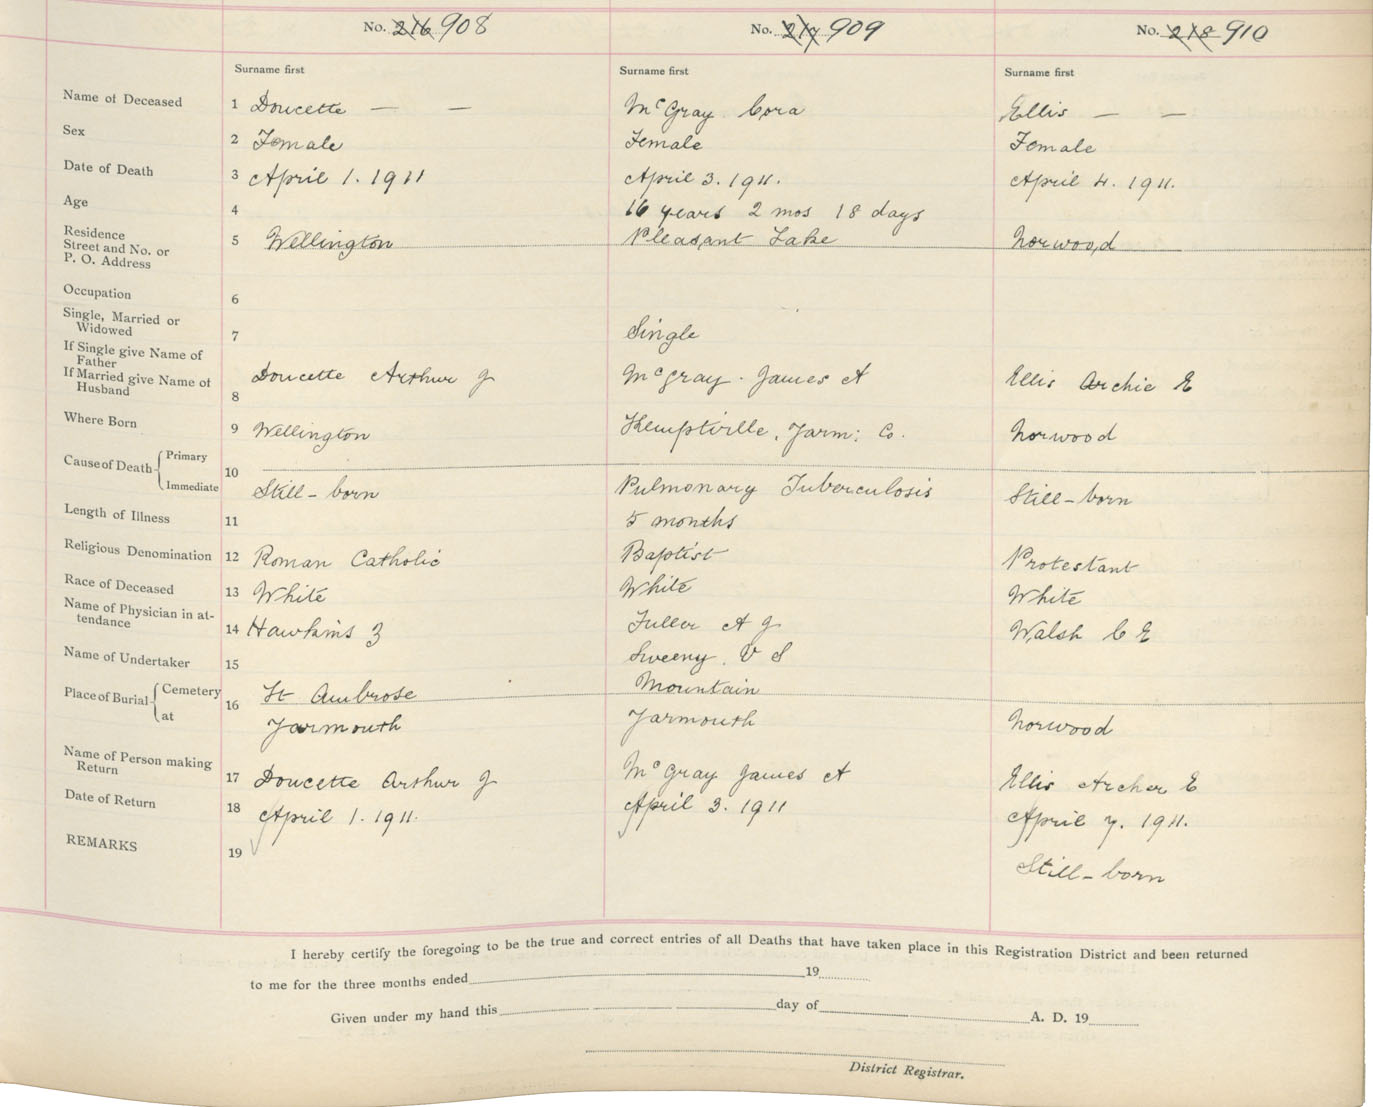 No. 216 908 No. 217 909 No. 218 910
Surname first Surname first Surname first
Name of Deceased 1 Doucette — — McGray Cora Ellis — —
Sex 2 Female Female Female
Date of Death 3 April 1. 1911 April 3. 1911. April 4. 1911.
Age 4 16 years 2 mos 18 days
Residence
Street and No. or 5 Wellington Pleasant Lake Norwood
P. O. Address
Occupation 6
Single, Married or
Widowed 7 Single
If Single give Name of
Father
If Married give Name of Doucette Arthur J McGray. James A Ellis Archie E
Husband 8
Where Born 9 Wellington Kemptville, Yarm: Co. Norwood
Cause of Death { Primary 10
Immediate Still-born Pulmonary Tuberculosis Still-born
Length of Illness 11 5 months
Religious Denomination 12 Roman Catholic Baptist Protestant
Race of Deceased 13 White White White
Name of Physician in at-
tendance 14 Hawkins Z Fuller A J Walsh C E
Name of Undertaker 15 Sweeny. V S
Place of Burial { Cemetery 16 St Ambrose Mountain
at Yarmouth Yarmouth Norwood
Name of Person making
Return 17 Doucette Arthur J McGray James A Ellis Archer E
Date of Return 18 April 1. 1911. April 3. 1911 April 7. 1911.
REMARKS 19 Still-born
I hereby certify the foregoing to be the true and correct entries of all Deaths that have taken place in this Registration District and been returned
to me for the three months ended 19
Given under my hand this day of A. D. 19
District Registrar.